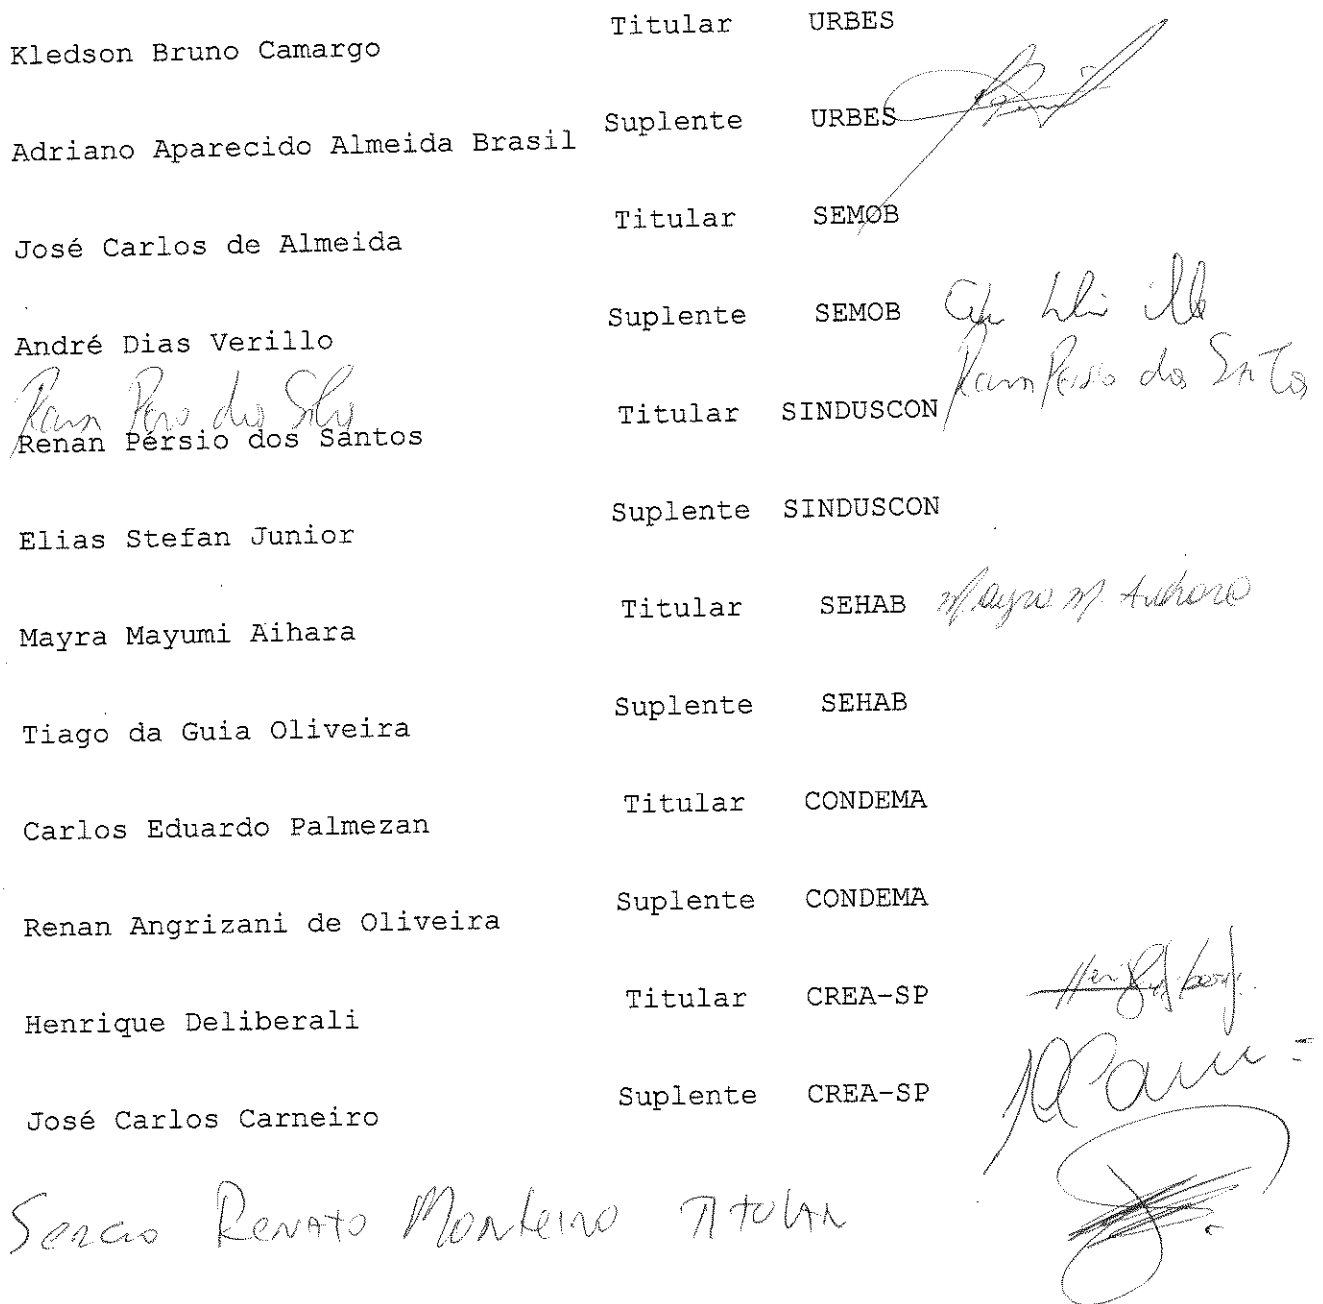 Kledson Bruno Camargo Titular URBES
Adriano Aparecido Almeida Brasil Suplente URBES
José Carlos de Almeida Titular SEMOB
André Dias Verillo Suplente SEMOB
Renan Pérsio dos Santos Titular SINDUSCON Renan Pérsio dos Santos
Elias Stefan Junior Suplente SINDUSCON
Mayra Mayumi Aihara Titular SEHAB Mayra M. Aihara
Tiago da Guia Oliveira Suplente SEHAB
Carlos Eduardo Palmezan Titular CONDEMA
Renan Angrizani de Oliveira Suplente CONDEMA
Henrique Deliberali Titular CREA-SP
José Carlos Carneiro Suplente CREA-SP
Sergio Renato Monteiro Titular